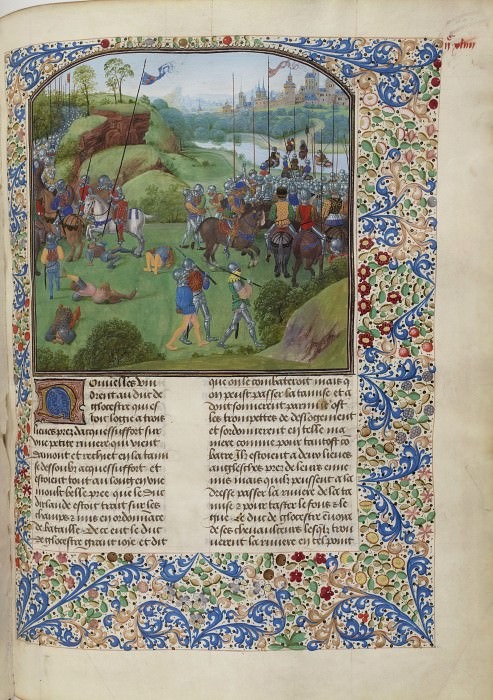 Nouvelles vin
drent au duc de
glocestre qui es
toit logie a trois
lieues pres dacquessuffort sur
une petite riviere qui vient
damont et rechiet en la tami
se dessoubz acquessuffort et
estoient tout au long en une
moult belle pree que le duc
dirlande estoit trait sur les
champs et mis en ordonnance
de bataille. De ce eut le duc
de glocestre grant ioie et dit
que on le combateroit mais q
on peust passer la tamise et a
dont sonnerent parmi lost
les trompettes de deslogement
et sordonnerent en telle ma
niere comme pour tantost co
batre. Ilz estoient a deux lieues
anglesches pres de leurs enne
mis mais quilz peussent a la
dresse passer la riviere de la ta
mise et pour taster le fons et le
gue. Le duc de glocestre envoya
de ses chevaulcheurs trou
verent la riviere en tel point